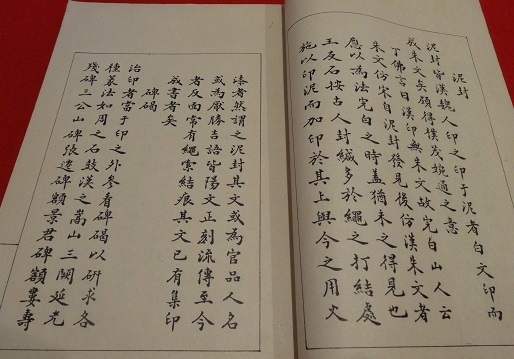 泥封
泥封皆漢魏人印之印于泥者白文印而
成朱文矣頗得樸茂婉通之意
丁佛言曰漢印無朱文故完白山人云
朱文仿宋自泥封發見後仿漢朱文者
應以為法完白之時蓋猶未之得見也
王反石按古人封緘多於繩之打結處
施以印泥而加印於其上與今之用火
漆者然謂之泥封其文或為官品人名
或為厭勝吉語皆陽文正刻流傳至今
者反面常有繩索結痕其文已有集印
成書者矣
碑碣
治印者當于印之外參看碑碣以研求各
種篆法如周之石鼓漢之嵩山三闕延光
殘碑三公山碑張遷碑額景君碑額婁壽